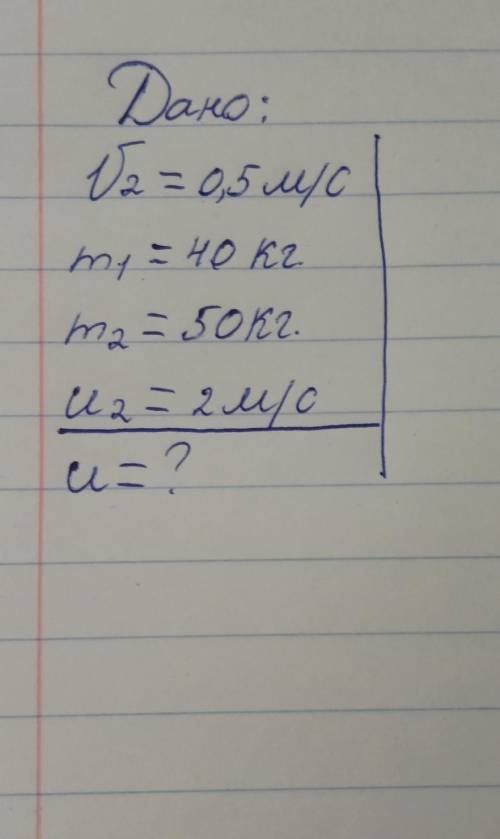 Дано:
V₂ = 0,5 м/с
m₁ = 40 кг.
m₂ = 50 кг.
u₂ = 2 м/с
u = ?